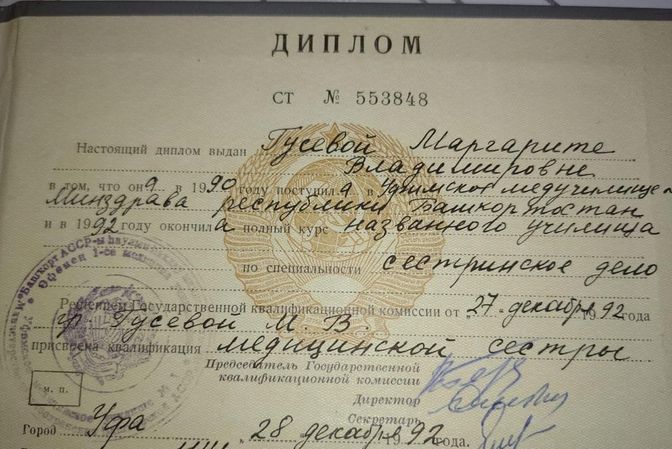 ДИПЛОМ
СТ № 553848
Настоящий диплом выдан Гусевой Маргарите
Владимировне
в том, что она в 1990 году поступила в Уфимское медучилище
Минздрава республики Башкортостан
и в 1992 году окончила полный курс названного училища
по специальности сестринское дело
Решением Государственной квалификационной комиссии от „27" декабря 1992 года
гр. Гусевой М. В.
присвоена квалификация медицинской сестры
Председатель Государственной
квалификационной комиссии
Директор
Секретарь
м. п.
Город Уфа „28" декабря 1992 года.